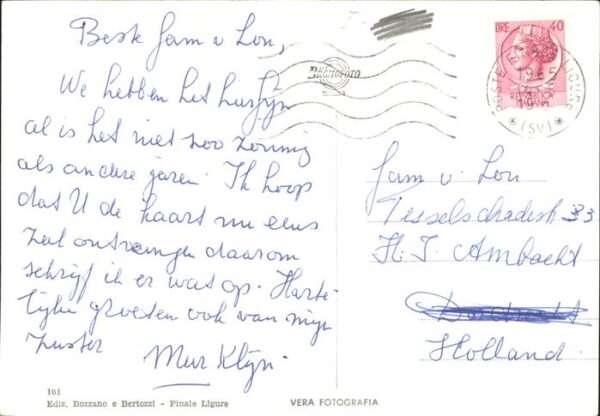 Beste fam v Lon,
We hebben het heerlijk
al is het niet zoo zonnig
als andere jaren. Ik hoop
dat U de kaart nu eens
zal ontvangen daarom
schrijf ik er wat op. Harte-
lijke groeten ook van mijn
zuster
Mw Klijn.
LIRE 40
POSTE
LIGURE
* (SV) *
Fam v. Lon
Tesselschadestr 33
H.I. Ambacht
Holland
101
Ediz. Bozzano e Bertozzi - Finale Ligure
VERA FOTOGRAFIA